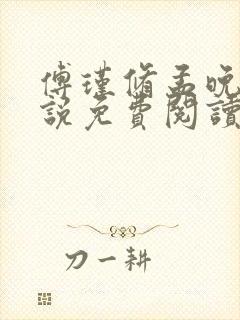 傅瑾脩孟晚
說免費閱讀
刀一耕